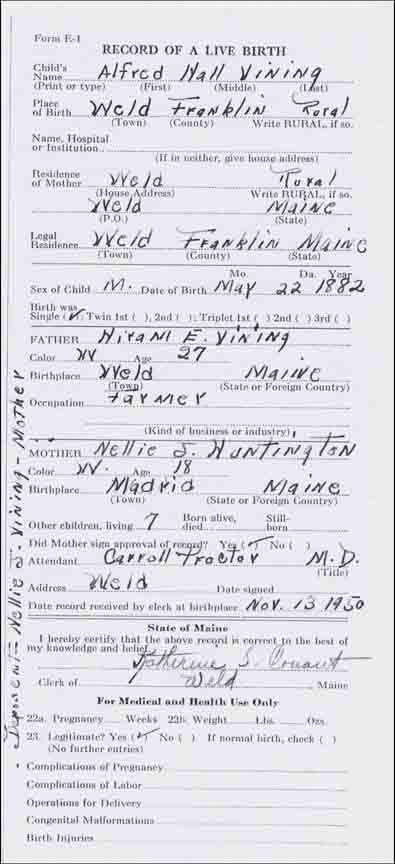 Form E-1
RECORD OF A LIVE BIRTH
Child's
Name Alfred Hall Vining
(Print or type) (First) (Middle) (Last)
Place
of Birth Weld Franklin Rural
(Town) (County) Write RURAL, if so.
Name, Hospital
or Institution
(If in neither, give house address)
Residence
of Mother Weld Rural
(House Address) Write RURAL, if so.
Weld Maine
(P.O.) (State)
Legal
Residence Weld Franklin Maine
(Town) (County) (State)
Mo. Da. Year
Sex of Child M. Date of Birth May 22 1882
Birth was
Single (✓), Twin 1st ( ), 2nd ( ); Triplet 1st ( ) 2nd ( ) 3rd ( )
FATHER Hiram E. Vining
Color W Age 27
Birthplace Weld Maine
(Town) (State or Foreign Country)
Occupation Farmer
(Kind of business or industry)
MOTHER Nellie J. Huntington
Color W. Age 18
Birthplace Madrid Maine
(Town) (State or Foreign Country)
Other children, living 7 Born alive, died Still-born
Did Mother sign approval of record? Yes (✓) No ( )
Attendant Carroll Proctor M.D.
(Title)
Address Weld Date signed
Date record received by clerk at birthplace Nov. 13 1950
State of Maine
I hereby certify that the above record is correct to the best of
my knowledge and belief.
Katherine S. Conant
Clerk of Weld Maine
For Medical and Health Use Only
22a. Pregnancy Weeks 22b. Weight Lbs. Ozs.
23. Legitimate? Yes (✓) No ( ) If normal birth, check ( )
(No further entries)
Complications of Pregnancy
Complications of Labor
Operations for Delivery
Congenital Malformations
Birth Injuries
Deponent - Nellie J. Vining - Mother